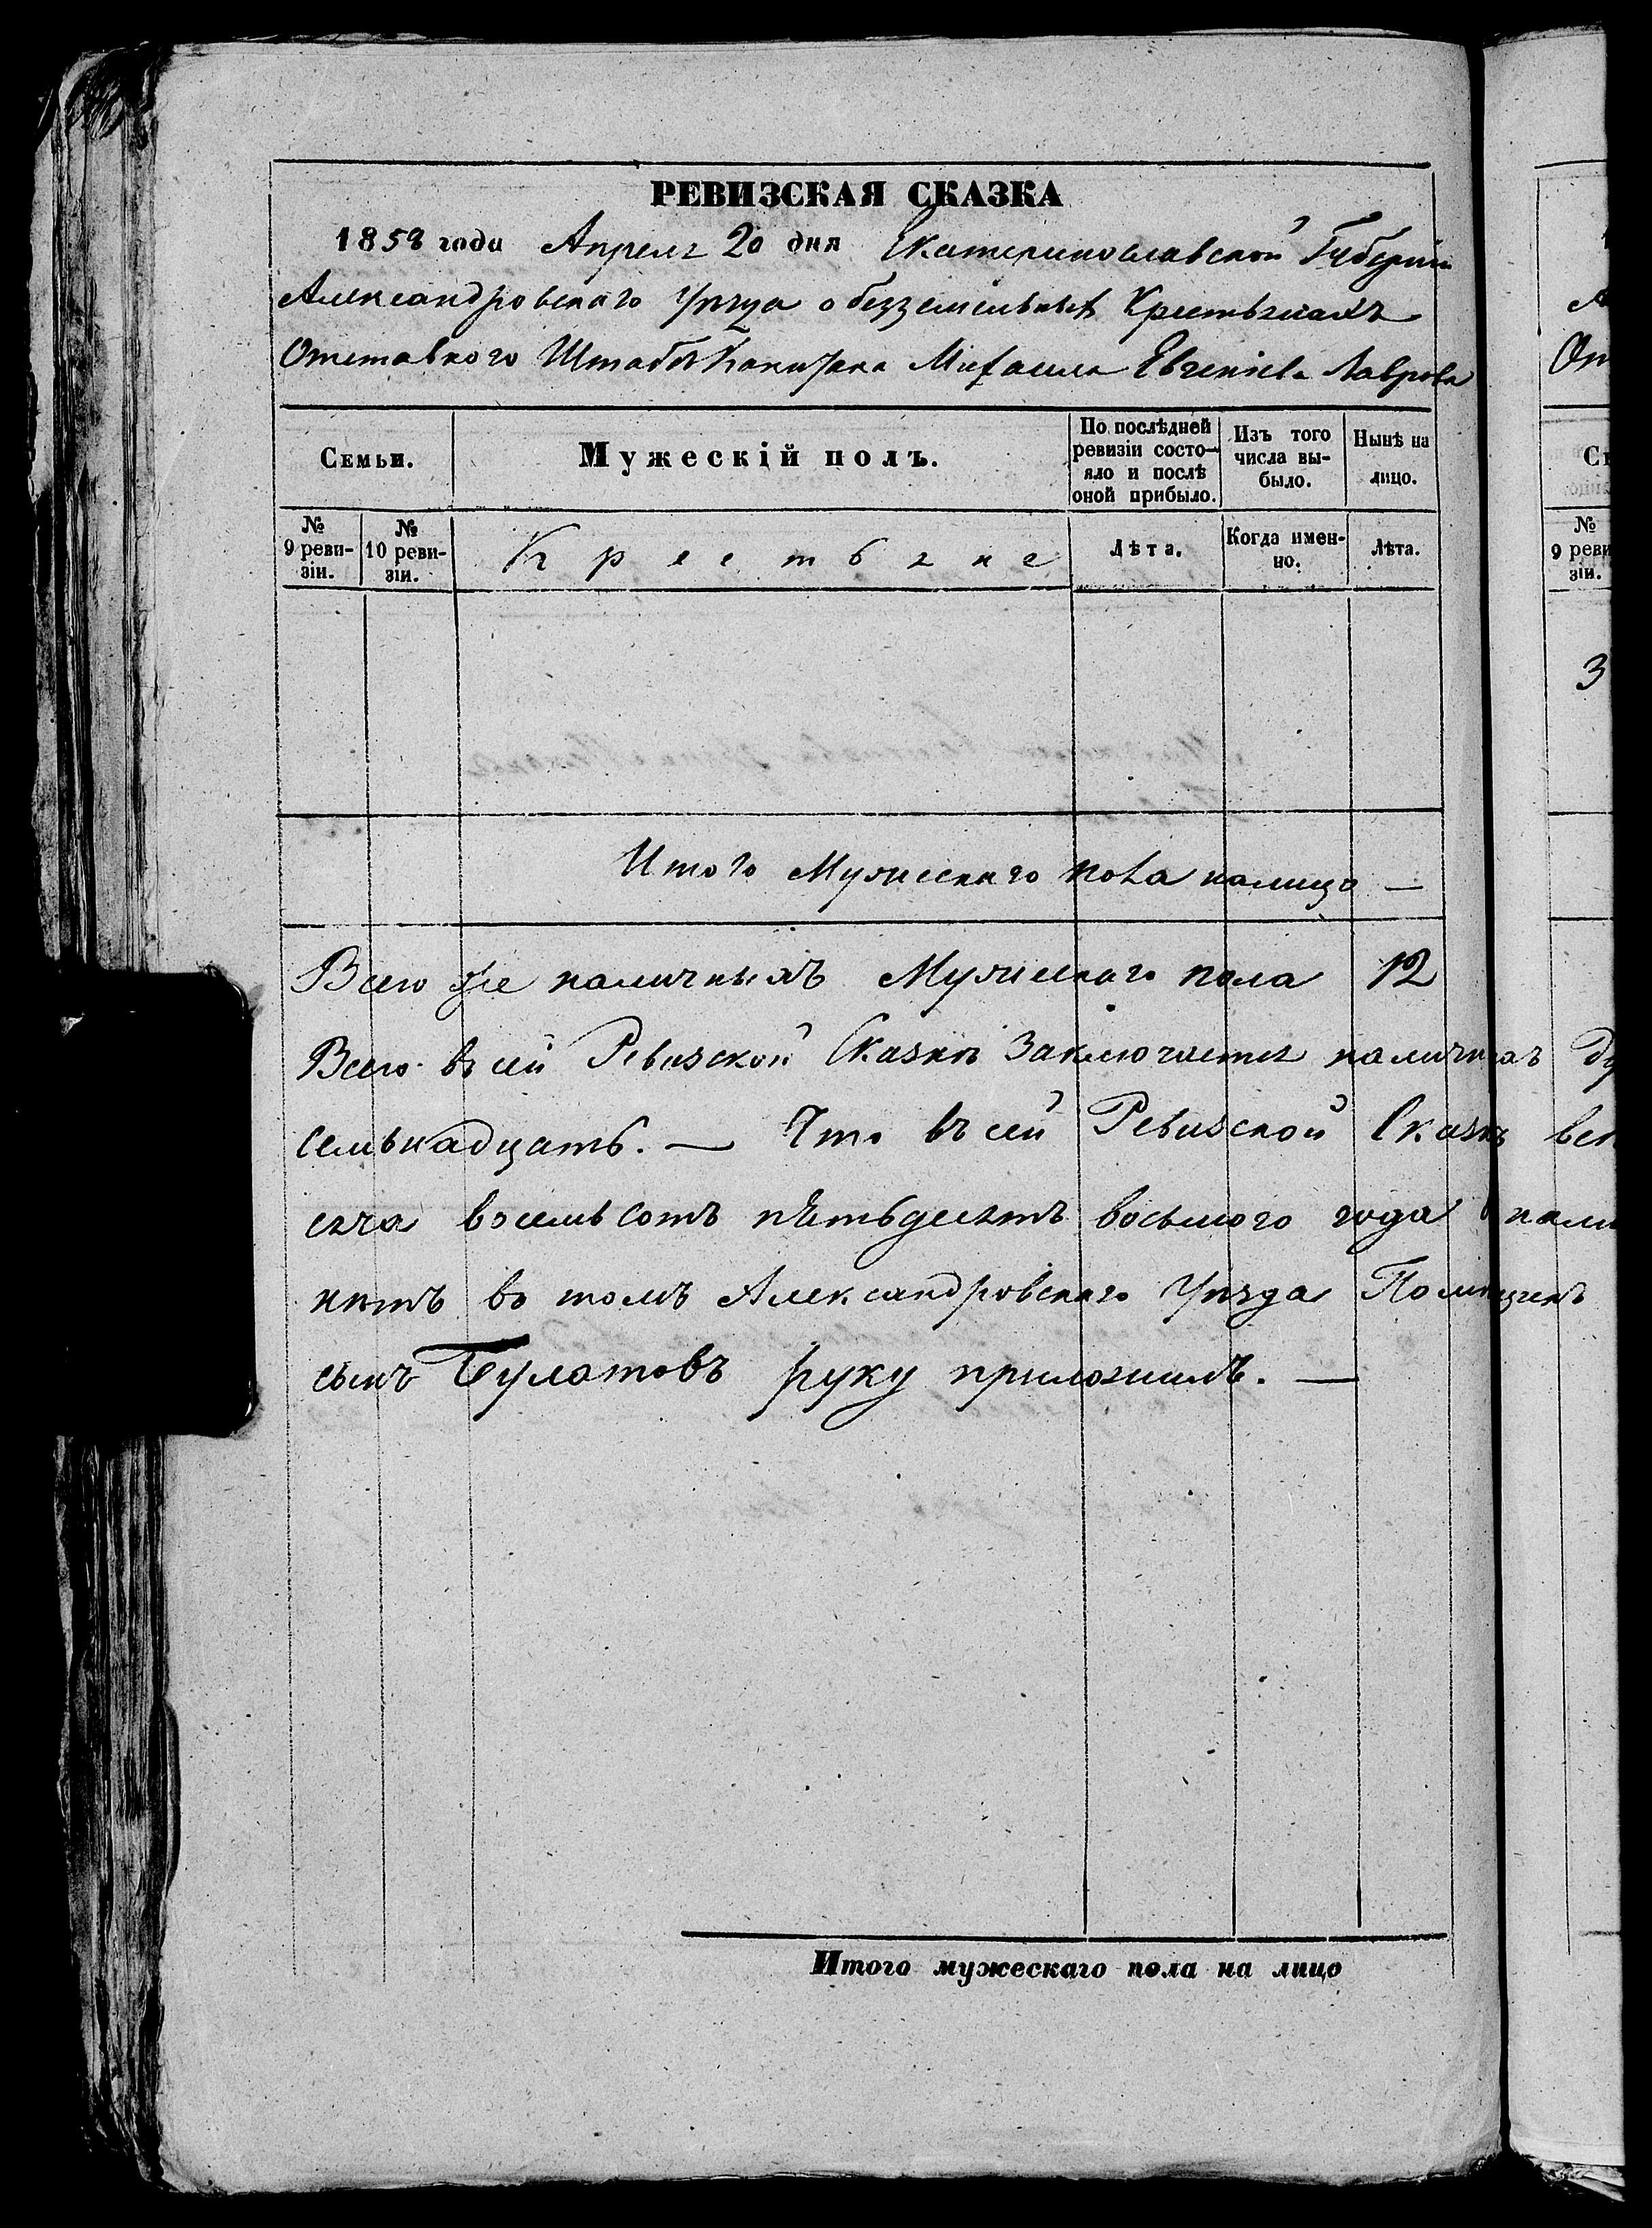 РЕВИЗСКАЯ СКАЗКА
1858 года Апреля 20 дня Екатеринославской Губерніи
Александровскаго Уѣзда о безземельныхъ Крестьянахъ
Отставного Штабсъ Капитана Михаила Евгеніева Лаврова
Семьи.
Мужескій полъ.
По послѣдней ревизіи состо-
яло и послѣ
оной прибыло.
Изъ того
числа вы-
было.
Нынѣ на
лицо.
№
9 реви-
зіи.
№
10 реви-
зіи.
Крестьяне
Лѣта.
Когда имен-
но.
Лѣта.
Итого Мужескаго пола налицо —
Всего же наличныхъ Мужескаго пола 12
Всего въ сей Ревизской Сказкѣ Заключается наличныхъ
семьнадцать. — Что въ сей Ревизской Сказкѣ
сяча восемьсотъ пятьдесятъ восьмого года
нѣтъ во томъ Александровскаго Уѣзда Помѣщикъ
сынъ Булатовъ руку приложилъ. —
Итого мужескаго пола на лицо
№
9 реви
зіи.
3